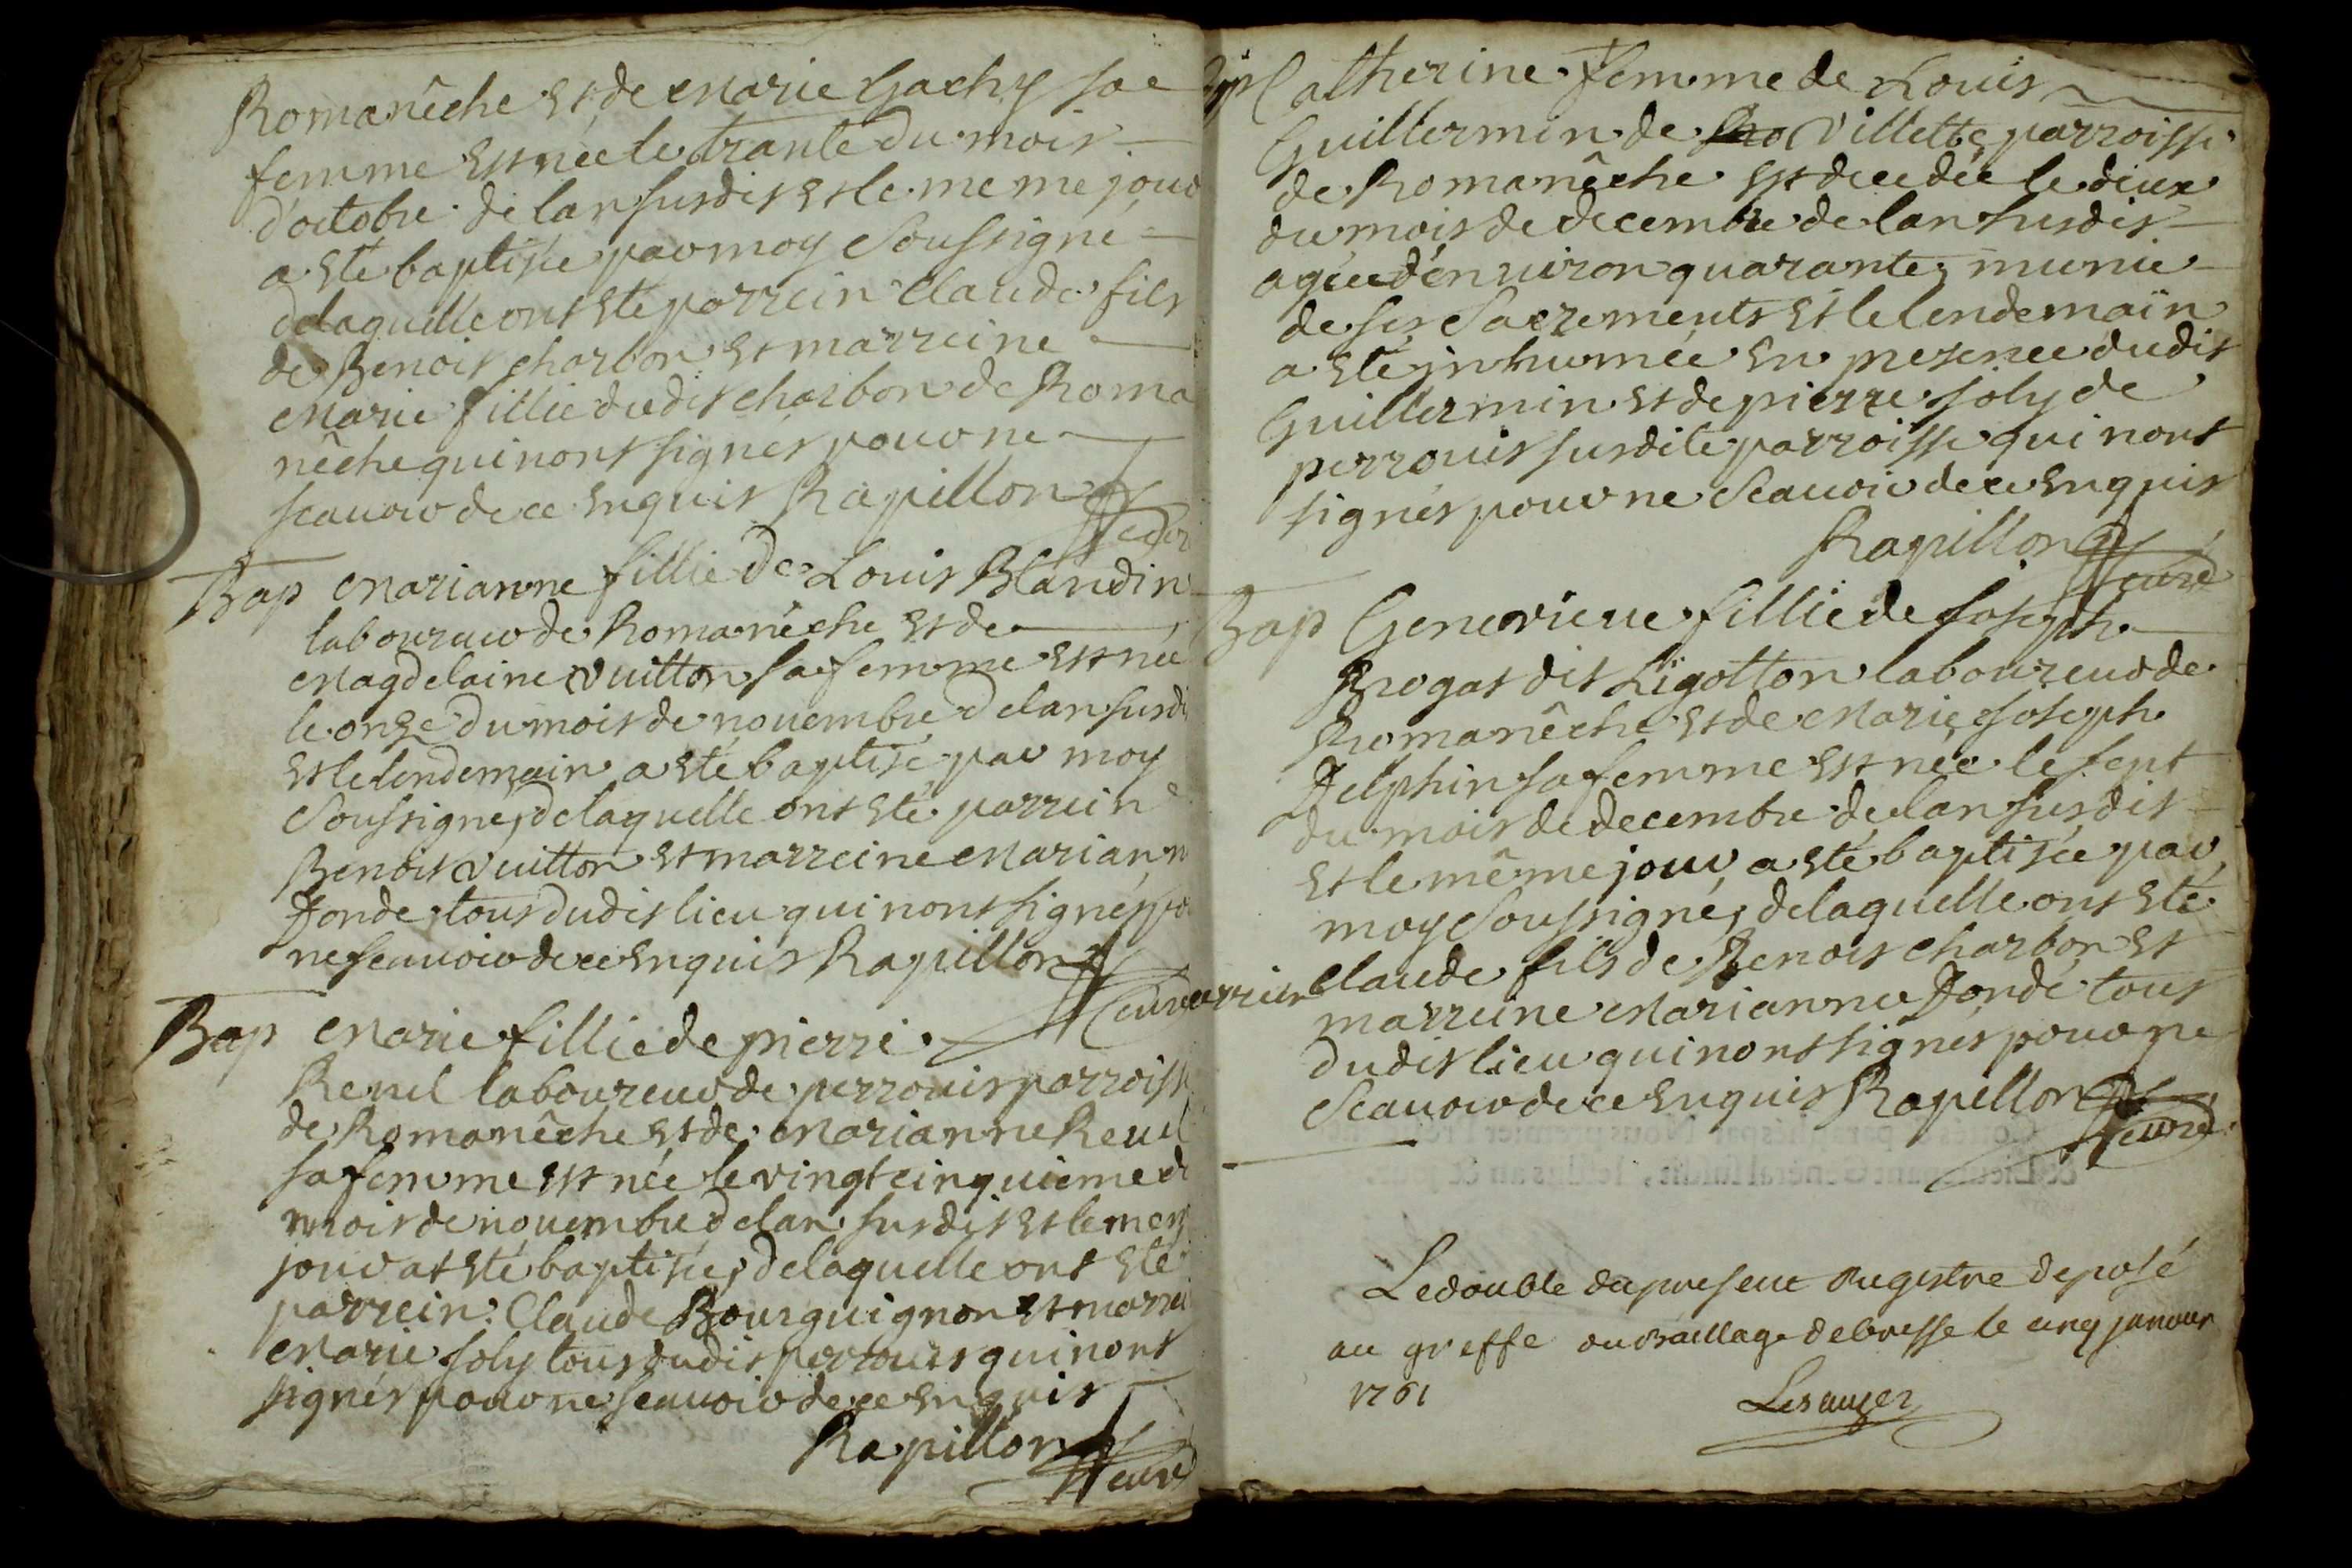 Romanêche et de Marie Gachy sa
femme est née le trante du mois
d'octobre de lan susdit et le meme jour
a eté baptisée par moy Soussigné
delaquelle ont eté parrein Claude fils
de Benoit charbon et marreine
Marie fillie dudit charbon de Roma
nêche qui nont signés pour ne
scauoir de ce enquis Rapillon
Bap Marianne fillie de Louis Blandin
laboureur de Romanêche et de
Magdelaine Vuitton sa femme est née
le onze du mois de nouembre de lan susdi
et le lendemain a eté baptisé par moy
Soussigné, delaquelle ont eté parrein
Benoit Vuitton et marreine Mariann
Jonde, tous dudit lieu qui nont signés po
ne scauoir de ce enquis Rapillon
curé
Bap Marie fillie de pierre
Reuil laboureur de perrouis parroiss
de Romanêche et de Marianne Reuil
sa femme est née le vingt cinquieme d
mois de nouembre de lan susdit et le mem
jour at eté baptisée, delaquelle ont eté
parrein Claude Bourguignon et marrei
Marie Joly tous dudit perrouis qui nont
signés pour ne scauoir de ce enquis
Rapillon
curé
Catherine femme de Louis
Guillermin de Villette, parroisse
de Romanêche est decedée le deux
du mois de decembre de lan susdit
agée d'enuiron quarante, munie
de ses Sacrements et le lendemain
a eté jnhumée en presence dudit
Guillermin et de pierre Joly de
perrouis susdite parroisse qui nont
signés pour ne Scauoir de ce enquis
Rapillon
curé
Bap Genevieue fillie de Joseph
Brogat dit Ligotton laboureur de
Romanêche et de Marie Joseph
Delphin sa femme est née le sept
du mois de decembre de lan susdit
et le même jour a eté baptisée par
moy Soussigné, delaquelle ont eté
parrein Claude fils de Benoit charbon et
marreine Marianne Jonde tous
dudit lieu qui nont signés pour ne
Scauoir de ce enquis Rapillon
curé
Le double du present Registre deposé
au greffe du Baillage de bresse le cinq januier
1761